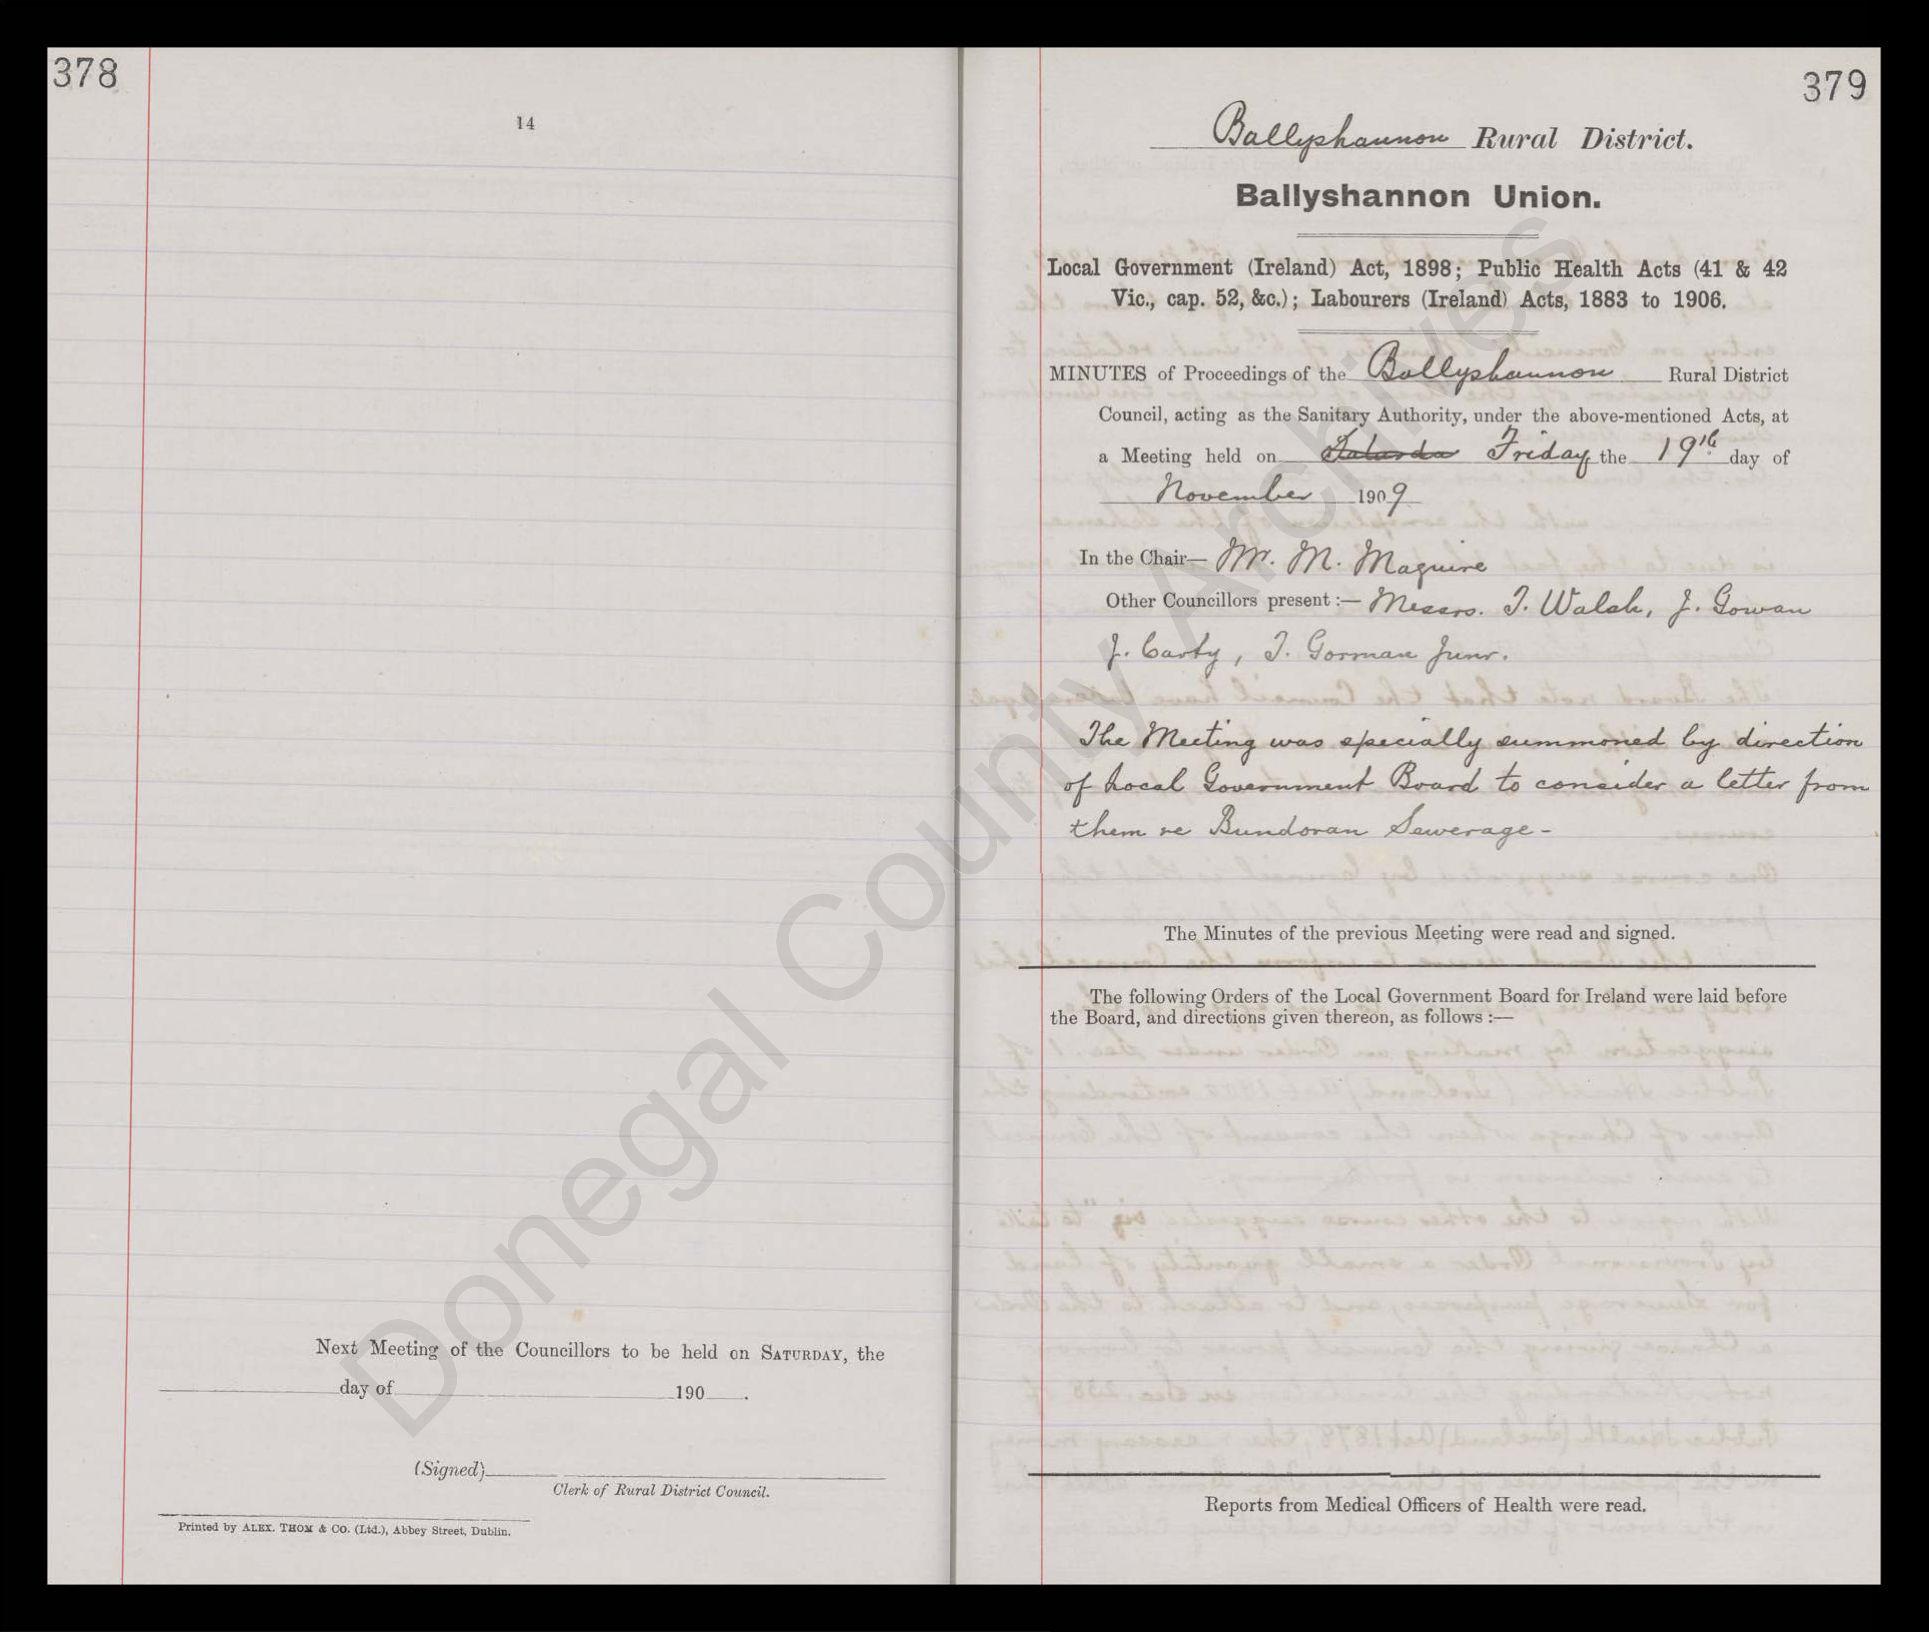 378
14
Next Meeting of the Councillors to be held on SATURDAY, the
day of 190 .
(Signed)
Clerk of Rural District Council.
Printed by ALEX. THOM & CO. (Ltd.), Abbey Street, Dublin.
379
Ballyshannon Rural District.
Ballyshannon Union.
Local Government (Ireland) Act, 1898; Public Health Acts (41 & 42
Vic., cap. 52, &c.); Labourers (Ireland) Acts, 1883 to 1906.
MINUTES of Proceedings of the Ballyshannon Rural District
Council, acting as the Sanitary Authority, under the above-mentioned Acts, at
a Meeting held on Saturda Friday the 19th day of
November 1909
In the Chair— Mr. M. Maguire
Other Councillors present :— Messrs. T. Walsh, J. Gowan
J. Carty, T. Gorman Junr.
The Meeting was specially summoned by direction
of Local Government Board to consider a letter from
them re Bundoran Sewerage -
The Minutes of the previous Meeting were read and signed.
The following Orders of the Local Government Board for Ireland were laid before
the Board, and directions given thereon, as follows :—
Reports from Medical Officers of Health were read.
Donegal County Archives